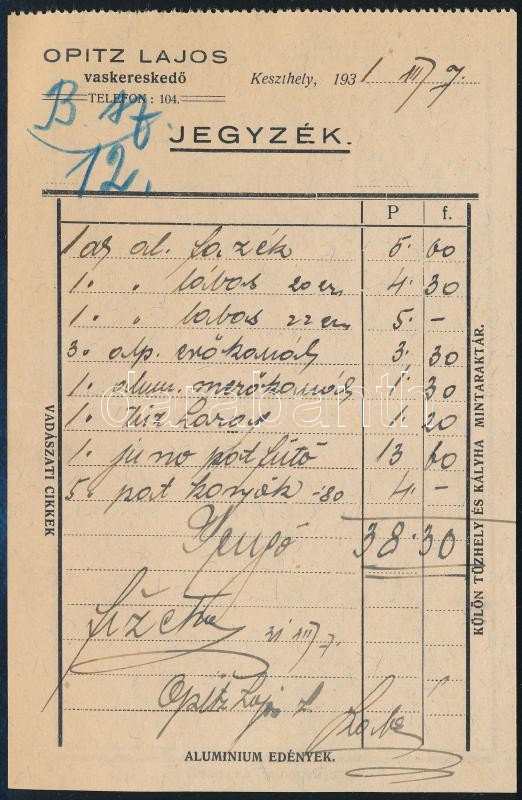 OPITZ LAJOS
vaskereskedő
TELEFON: 104.
Keszthely, 1931 III/7.
B. 17.
12.
JEGYZÉK.
P f.
1 al. fazék 5. 60
1. " lábas 20 cm 4. 30
1. " lábas 22 cm 5. -
3. alp. evőkanál 3. 30
1. alum. merőkanál 1. 30
1. 1. 20
1. juno pótfűtő 13 60
5. pat könyök -80 4. -
Pengő 38.30
Fizetve 31 III/7.
Opitz Lajos
VADÁSZATI CIKKEK
KÜLÖN TŰZHELY ÉS KÁLYHA MINTARAKTÁR.
ALUMINIUM EDÉNYEK.
darabanth